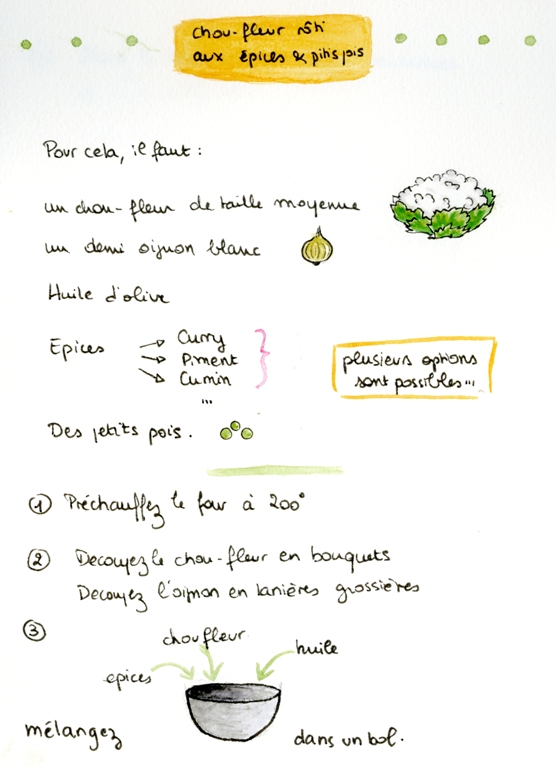 chou-fleur rôti
aux épices & ptits pois
Pour cela, il faut :
un chou-fleur de taille moyenne
un demi oignon blanc
Huile d'olive
Epices
Curry
Piment
Cumin
...
plusieurs options
sont possibles...
Des petits pois.
① Préchauffez le four à 200°
② Decoupez le chou-fleur en bouquets
Decoupez l'oignon en lanières grossières
③
choufleur
huile
epices
mélangez
dans un bol.